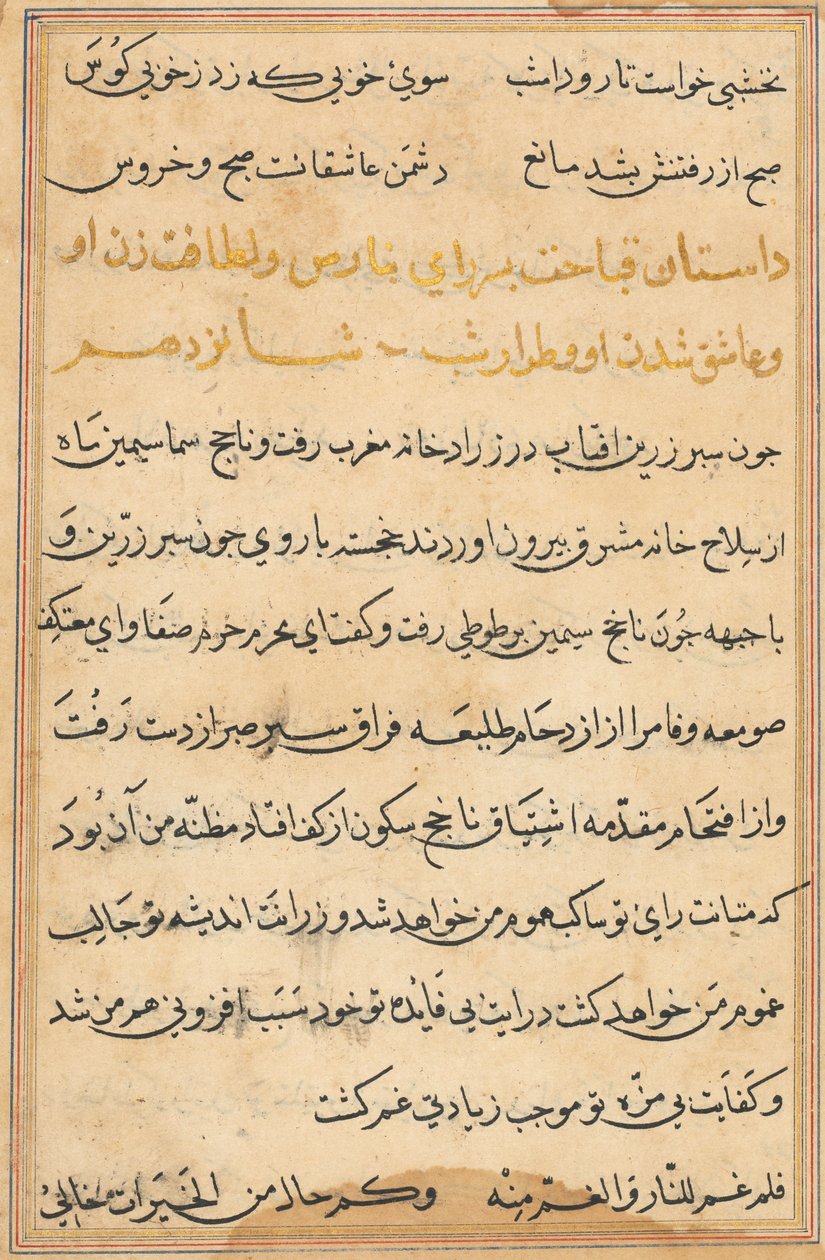 نخشبی خواست تا رود امشب سوی خوبی که زد ز خوبی کوس
صبح از رفتنش بشد مانع دشمن عاشقانست صبح و خروس
داستان قباحت بهرامی بنارس و لطافت زن او
و عاشق شدن او و طرار شب شانزدهم
جون سپر زرین افتاب در زراد خانه مغرب رفت و ناجخ سیمین ماه
از سلاح خانه مشرق بیرون اوردند خجسته با روی جون سپر زرین و
با جبهه جون ناجخ سیمین بر طوطی رفت و کفت ای محرم حرم صفا و ای معتکف
صومعه وفا مرا از ازدحام طلیعه فراق سپر صبر از دست رفت
و از افتحام مقدمه اشتیاق ناجخ سکون از کف افتاد مظنه من آن بود
که متانت رای تو ساکب هموم من خواهد شد و زرانت اندیشه تو جالب
غموم من خواهد کشت درایت بی فایده تو خود سبب افزونی هم من شد
و کفایت بی مزه تو موجب زیادتی غم کشت
فلم غم للنار و الغم منه و کم حال من الخیرات خالی